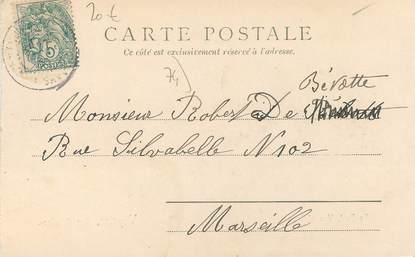 20 €
CARTE POSTALE
Ce côté est exclusivement réservé à l'adresse.
74
Bérotte
Monsieur Robert De
Rue Silvabelle N 102
Marseille